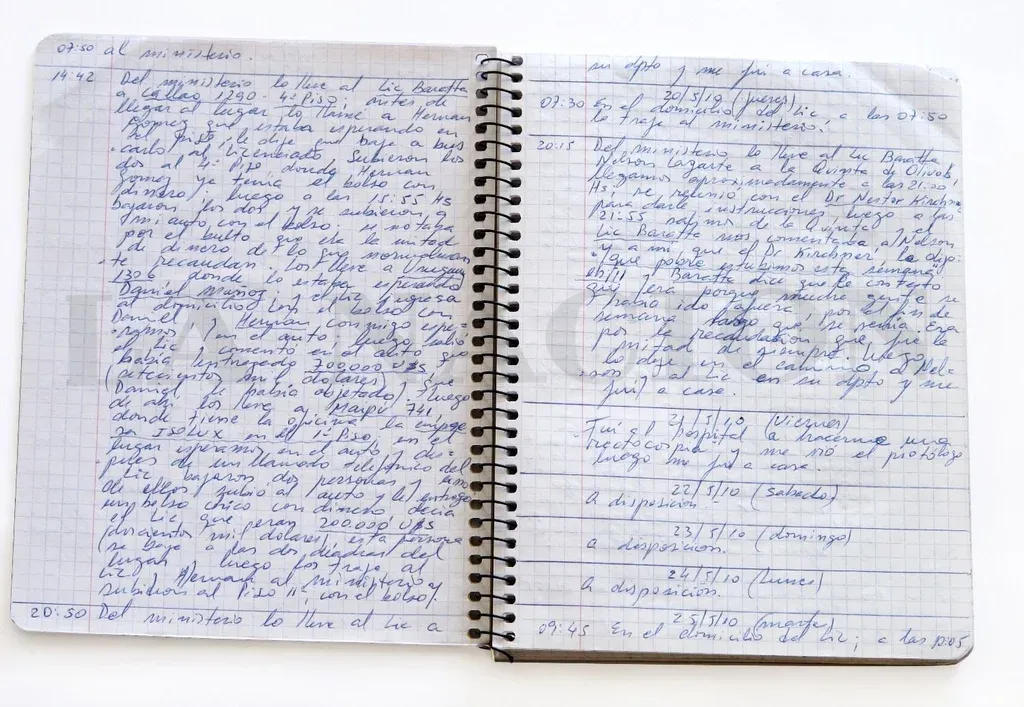 07:50 al ministerio.
14:42 Del ministerio lo lleve al Lic Baratta
a Callao 1290 4º Piso, antes de
llegar al lugar lo llame a Hernan
Gomez que estaba esperando en
el piso, le dije que baje a bus-
carlo al Licenciado Subieron los
dos al 4º Piso, donde Hernan
Gomez ya tenia el bolso con
dinero; luego a las 15:55 Hs
bajaron los dos y se subieron a
mi auto con el bolso; se notaba
por el bulto que era la mitad
de dinero de lo que normalmen-
te recaudan; Los lleve a Uruguay
1306 donde lo estaba esperando
Daniel Muñoz y el Lic ingresa
al domicilio con el bolso con
Daniel y Hernan conmigo espe-
ramos en el auto; luego salio
el Lic y comento en el auto que
habia entregado 700.000 U$S
(setecientos mil dolares) y que
Daniel le habia objetado). luego
de ahi los lleve a Maipu 741,
donde tiene la oficina la empre-
sa ISOLUX en el 1º Piso, en el
lugar esperamos en el auto y des-
pues de un llamado telefonico del
Lic bajaron dos personas y uno
de ellos subio al auto y le entrego
un bolso chico con dinero decia
el Lic que eran 200.000 U$S
(doscientos mil dolares), esta persona
se bajo a las dos cuadras del
lugar luego los traje al
Lic y Hernan al ministerio y
subieron al Piso 11º, con el bolso).
20:50 Del ministerio lo lleve al Lic a
su dpto y me fui a casa.
20/5/10 (jueves)
07:30 En el domicilio del Lic a las 07:50
lo traje al ministerio.
20:15 Del ministerio lo lleve al Lic Baratta
Nelson Lazarte a la Quinta de Olivos,
llegamos aproximadamente a las 21:00
Hs; se reunio con el Dr Nestor Kirchner
para darle instrucciones, luego a las
21:55 salimos de la Quinta y el
Lic Baratta nos comentaba al Nelson
y a mi que el Dr Kirchner le dijo:
¡que pobre estubimos esta semana
eh!!! y Baratta dice que le contesto
que sera porque mucha gente se
habia ido afuera, por el fin de
semana largo que se venia. Era
por la recaudacion que fue la
mitad de siempre. luego
lo deje en el camino al Nel-
son y al Lic en su dpto y me
fui a casa.
21/5/10 (Viernes)
Fui al hospital a hacerme una
rectocospia y me vio el proctologo
luego me fui a casa.
22/5/10 (sabado)
A disposicion.
23/5/10 (domingo)
a disposicion.
24/5/10 (Lunes)
A disposicion.
25/5/10 (martes)
09:45 En el domicilio del Lic; a las 10:05
LA NACION